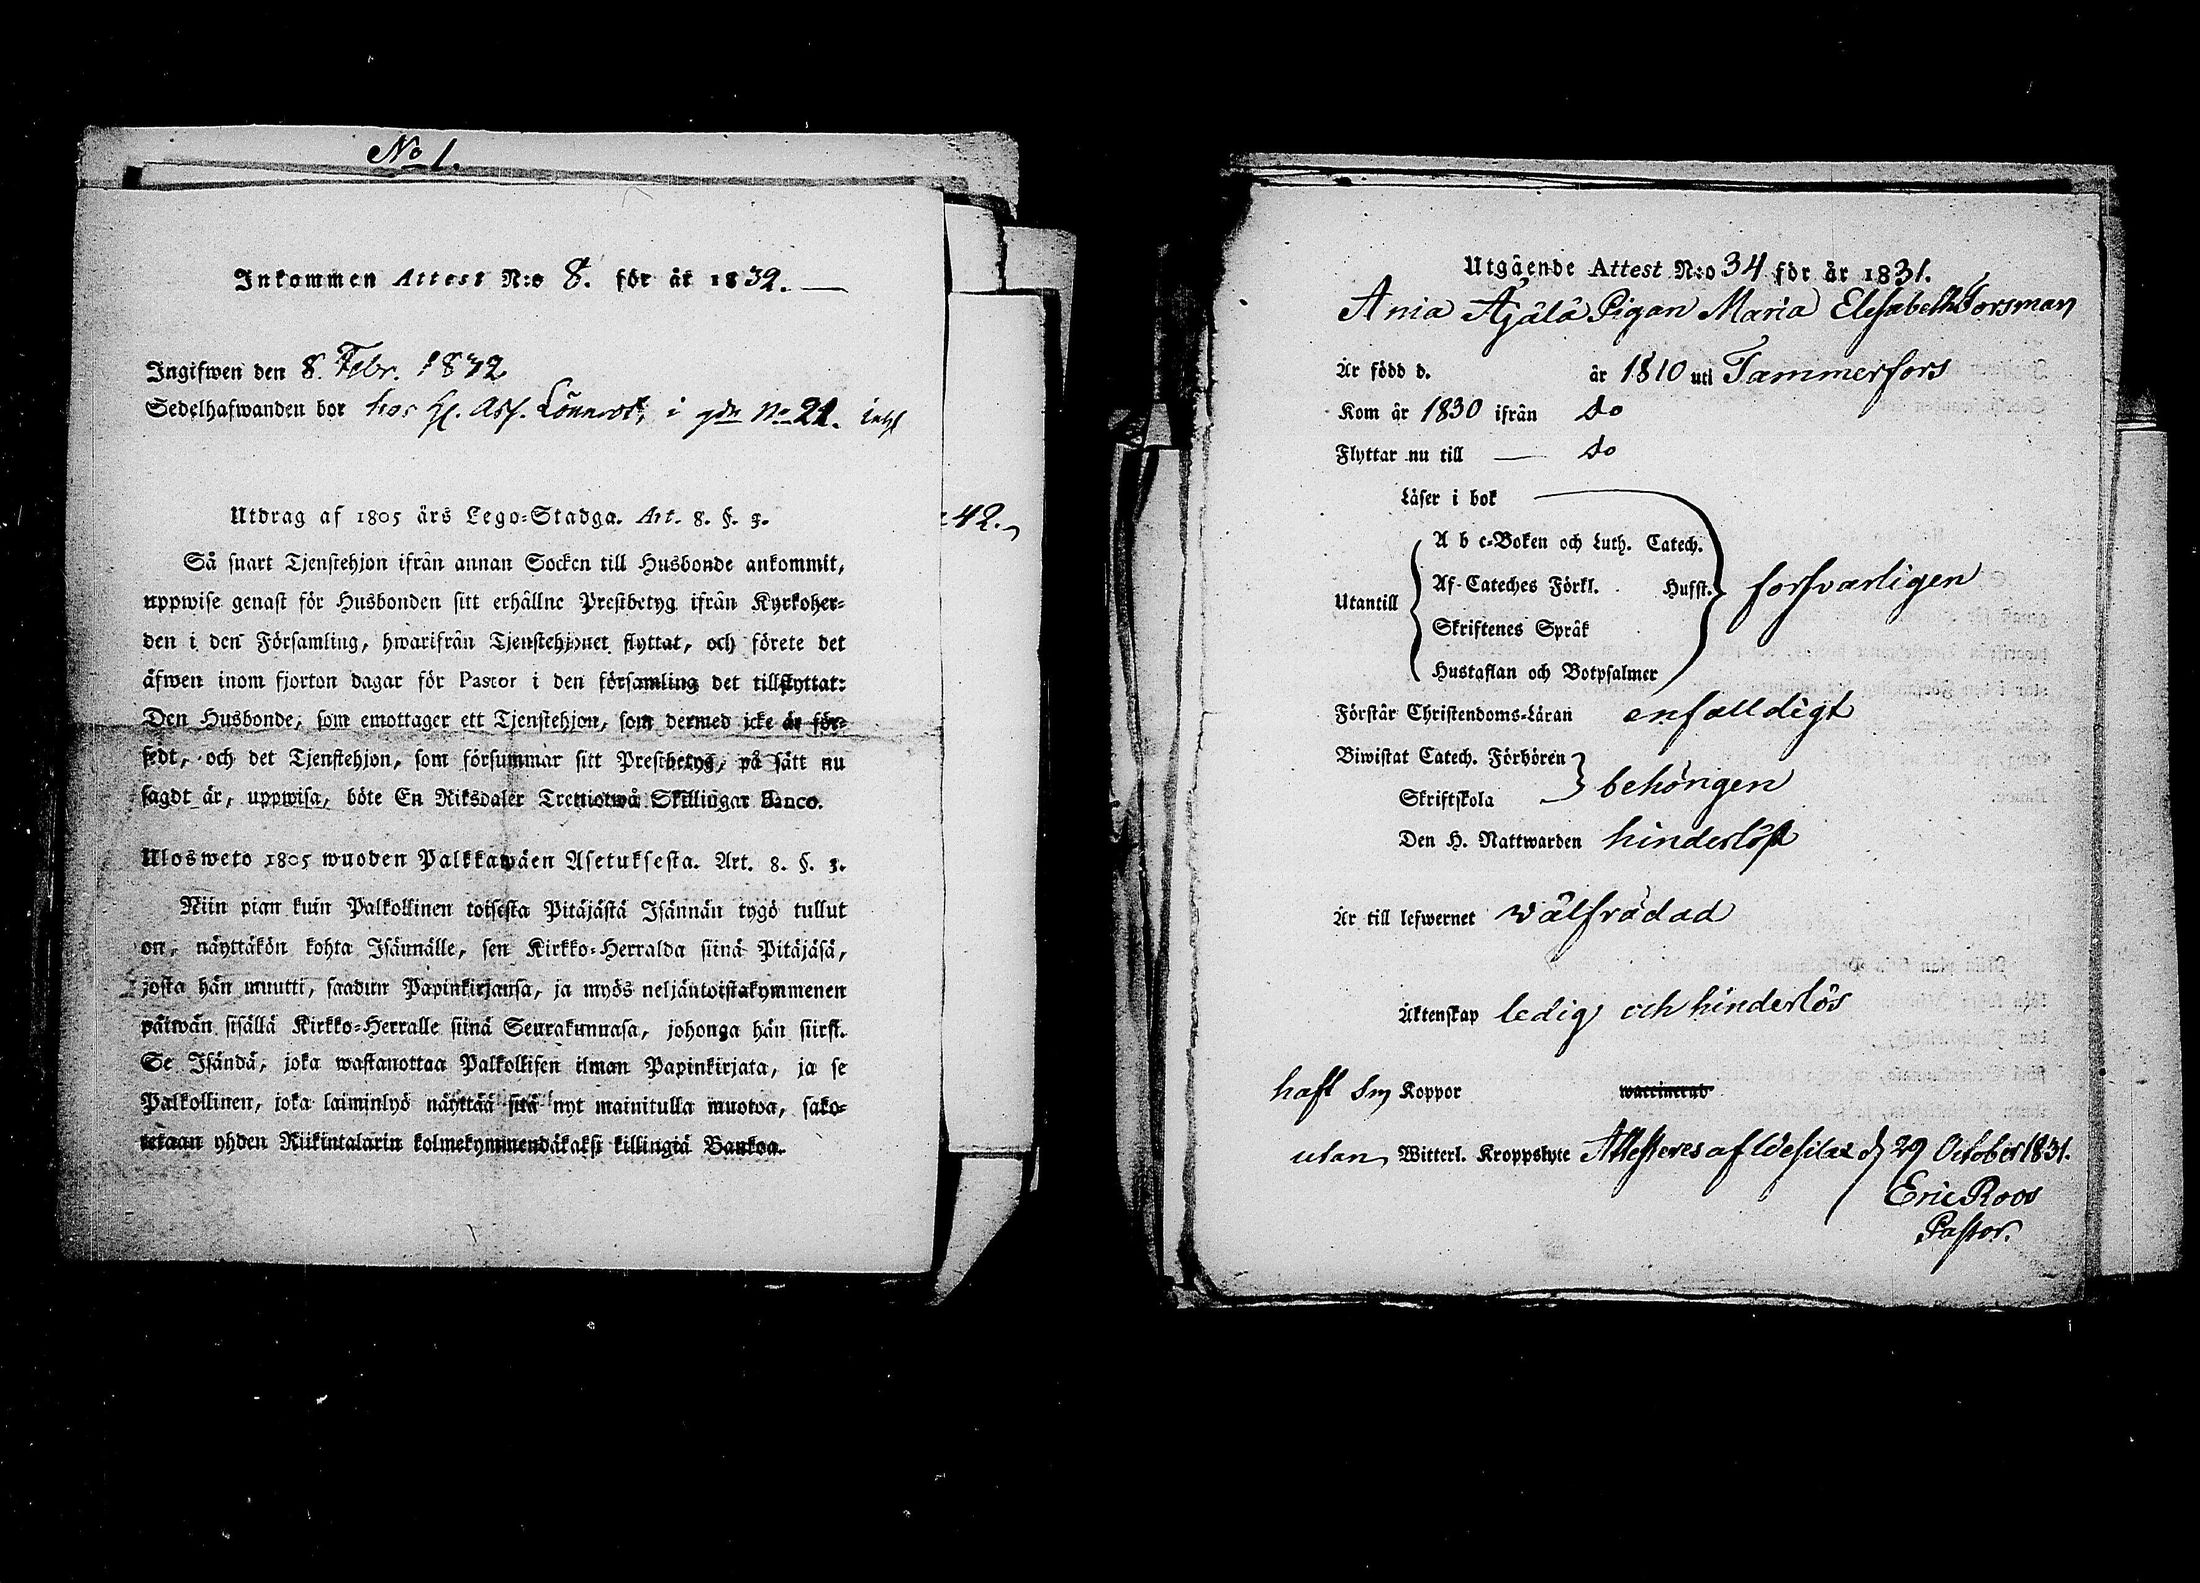 No 1.
Inkommen Attest N:o 8. för år 1832.
Ingifwen den 8. Febr. 1832
Sedelhafwanden bor hos H. Ass. Lönnrot, i gdn No 21.
Utdrag af 1805 års Lego-Stadga. Art. 8. §. 3.
Så snart Tjenstehjon ifrån annan Socken till Husbonde ankommit,
uppwise genast för Husbonden sitt erhållne Prestbetyg ifrån Kyrkoher-
den i den Församling, hwarifrån Tjenstehjonet flyttat, och förete det
äfwen inom fjorton dagar för Pastor i den församling det tillflyttat:
Den Husbonde, som emottager ett Tjenstehjon, som dermed icke är för-
sedt, och det Tjenstehjon, som försummar sitt Prestbetyg, på sätt nu
sagdt är, uppwisa, böte En Riksdaler Trettiotwå Skillingar Banco.
Ulosweto 1805 wuoden Palkkawäen Asetuksesta. Art. 8. §. 3.
Niin pian kuin Palkollinen toisesta Pitäjästä Isännän tygö tullut
on, näyttäkön kohta Isännälle, sen Kirkko-Herralda siinä Pitäjäsä,
josta hän muutti, saadun Papinkirjansa, ja myös neljäntoistakymmenen
päiwän sisällä Kirkko-Herralle siinä Seurakunnasa, johonga hän siirst.
Se Isändä, joka wastanottaa Palkollisen ilman Papinkirjata, ja se
Palkollinen, joka laiminlyö näyttää sitä nyt mainitulla muotoa, sako-
tetaan yhden Riikintalarin kolmekymmendäkaksi killingiä Bankoa.
42.
Utgående Attest N:o 34 för år 1831.
Ania Äjälä Pigan Maria Elisabeth Forsman
Är född d. år 1810 uti Tammerfors
Kom år 1830 ifrån do
Flyttar nu till — do
Läser i bok
A b c-Boken och Luth. Catech.
Utantill Af Cateches Förkl. Husst. forsvarligen
Skriftenes Språk
Hustaflan och Botpsalmer
Förstår Christendoms-Läran enfalldigt
Biwistat Catech. Förhören
Skriftskola behörigen
Den H. Nattwarden hinderlöst
Är till lefwernet wälfrädad
Äktenskap ledig och hinderlös
haft Sm Koppor waccinerad
utan Witterl. Kroppslyte Attesteres af Wesilax d 29 October 1831.
Eric Roos
Pastor.